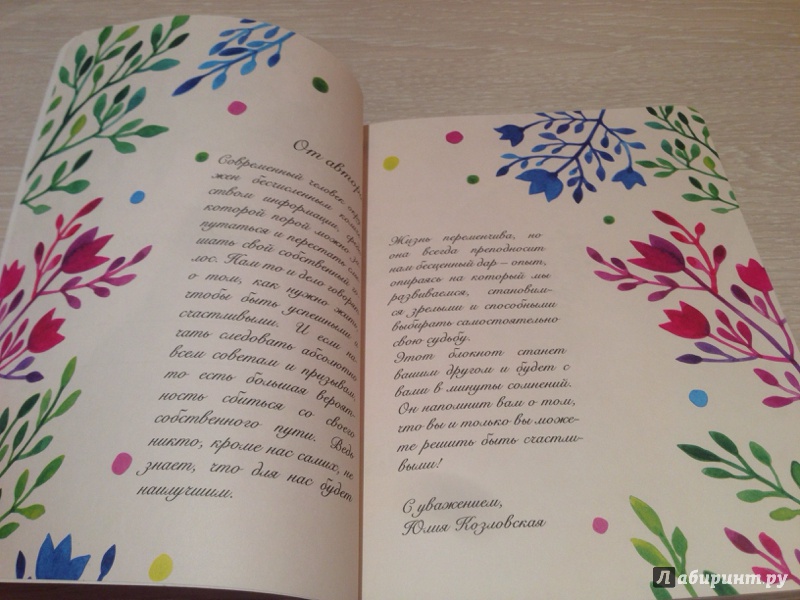 От автора
Современный человек окру-
жен бесчисленным количе-
ством информации, среди
которой порой можно за-
путаться и перестать слы-
шать свой собственный го-
лос. Нам то и дело говорят
о том, как нужно жить,
чтобы быть успешными и
счастливыми. И если на-
чать следовать абсолютно
всем советам и призывам,
то есть большая вероят-
ность сбиться со своего
собственного пути. Ведь
никто, кроме нас самих, не
знает, что для нас будет
наилучшим.
Жизнь переменчива, но
она всегда преподносит
нам бесценный дар – опыт,
опираясь на который мы
развиваемся, становим-
ся зрелыми и способными
выбирать самостоятельно
свою судьбу.
Этот блокнот станет
вашим другом и будет с
вами в минуты сомнений.
Он напомнит вам о том,
что вы и только вы може-
те решить быть счастли-
выми!
С уважением,
Юлия Козловская
Лабиринт.ру